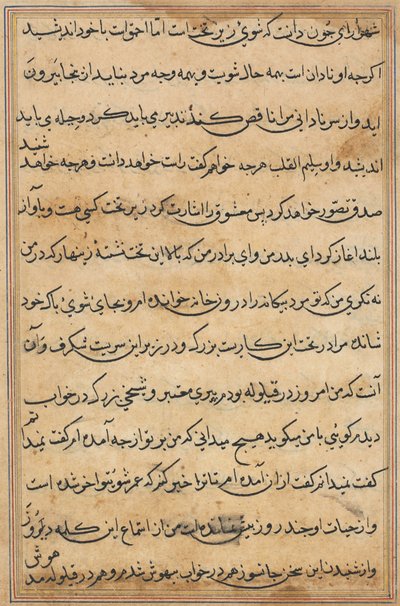 شهرارای چون دانست که شوی زیر تخت است اما احمق است با خود اندیشید
اکرچه او نادان است بهمه حال شویست و بهمه وجه مرد نباید از نجا بیرون
اید و از سر نادانی مرا ناقص کند تدبیری باید کرد و حیله‌ی باید
اندیشید و او سلیم القلب هرچه خواهم کفت راست خواهد دانست و هرچه خواهد شنید
صدق تصور خواهد کرد پس معشوق را اشارت کرد زیر تخت کسی هست و باواز
بلند اغاز کرد ای بدر من و ای برادر من که بالا این تخت نشسته زینهار که در من
نه نکری من که تو مرد بیکانه را در روز خانه خوانده ام و بجای شوی باک خود
شانده مرا در تحت این کاریست بزرک و در زیر این سریست شکرف و آن
آنست که من امروز در قیلوله بودم پیری معتبر و شیخی بزرک در خواب
دیدم کوئی با من میکوید هیچ میدانی که من بر تو از چه آمده ام کفت نمیدانم
کفت نمیدانم کفت از ان آمده ام تا ترا خبر کنم که عمر شوی تو اخر شده است
و از حیات او چند روز بیش نمانده است من از استماع این کلمه دلدوز
و از شنیدن این سخن جانسوز هم در خواب بیهوش شدم و هم در قیلوله مدهوش